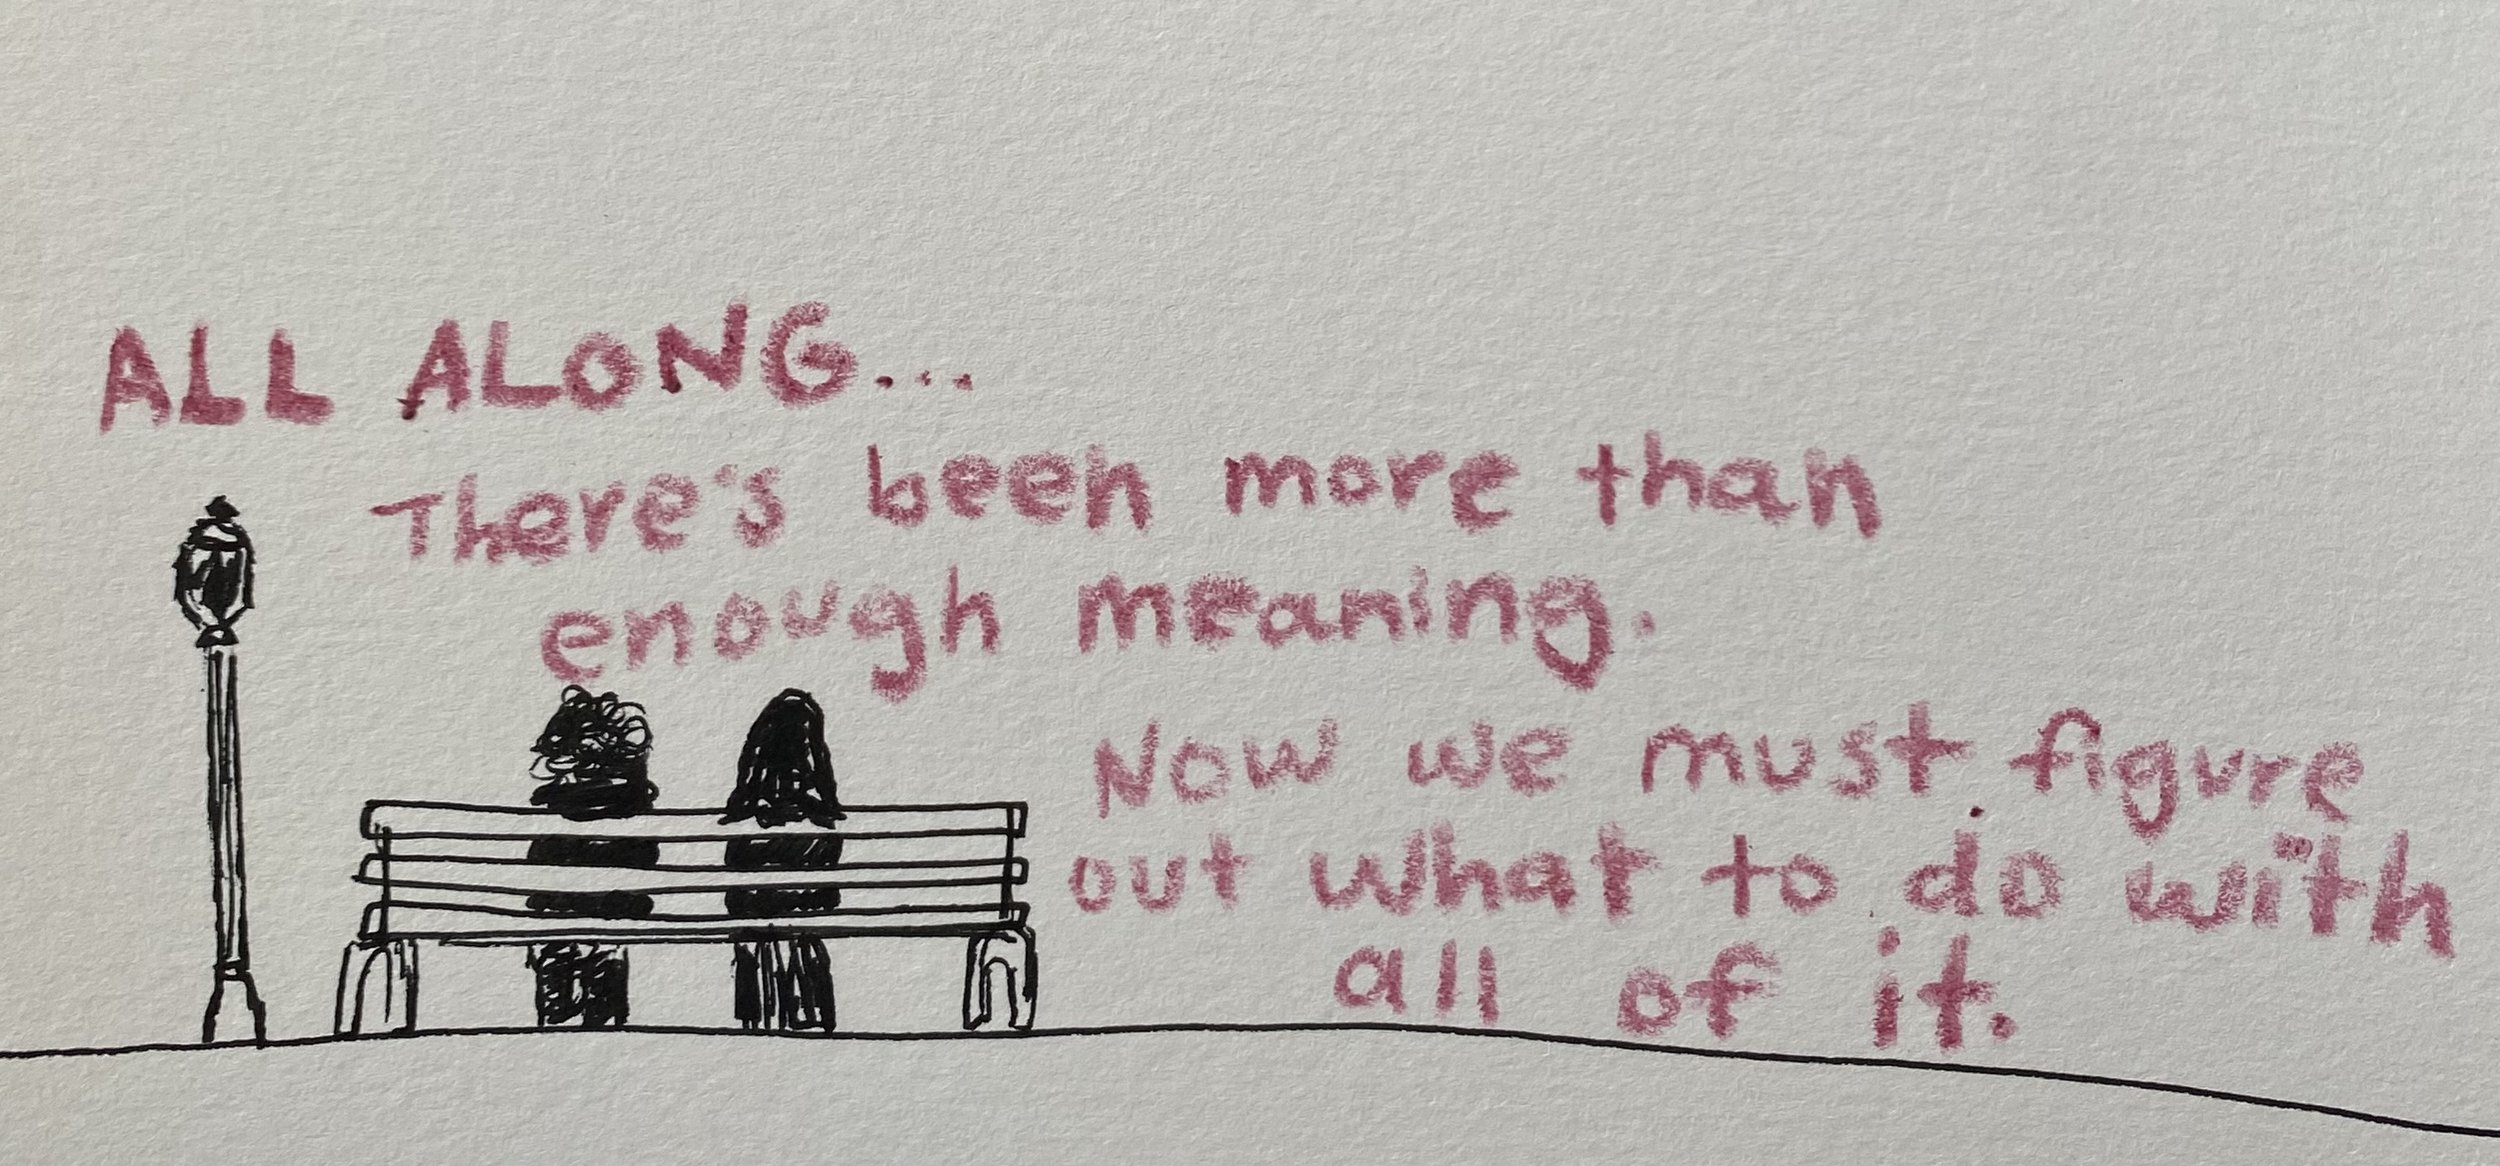 ALL ALONG...
There's been more than
enough meaning.
Now we must figure
out what to do with
all of it.